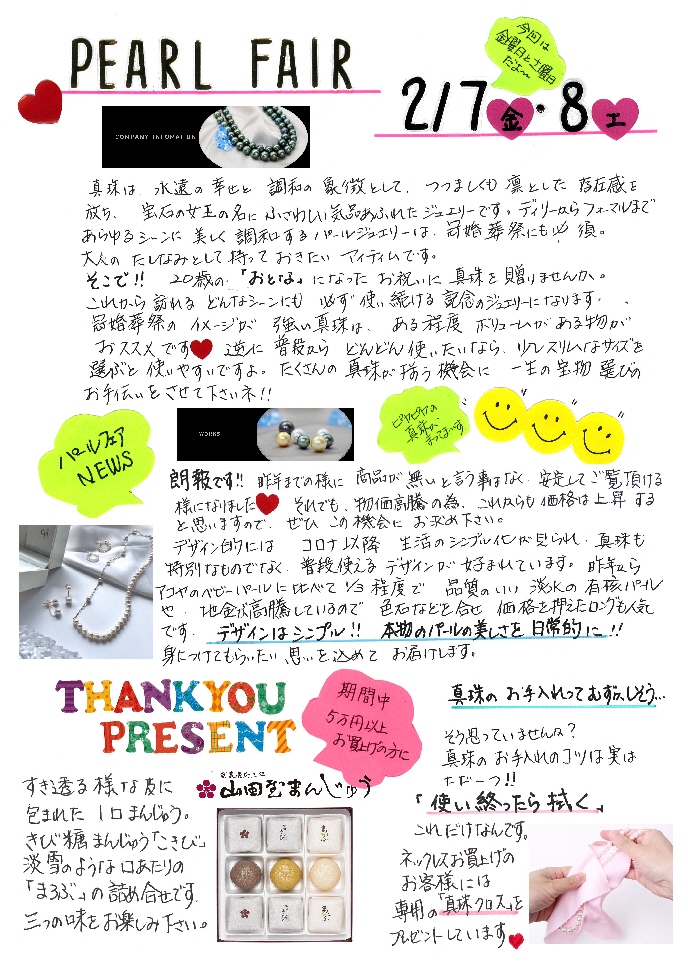 PEARL FAIR
今回は
金曜日と土曜日
だよ〜
2/7金・8土
COMPANY INFOMATION
真珠は、永遠の幸せと 調和の象徴として、つつましくも凛とした存在感を
放ち、宝石の女王の名にふさわしい気品あふれたジュエリーです。デイリーからフォーマルまで
あらゆるシーンに美しく調和するパールジュエリーは、冠婚葬祭にも必須。
大人のたしなみとして持っておきたいアイテムです。
そこで!! 20歳の「おとな」になったお祝いに真珠を贈りませんか。
これから訪れるどんなシーンにも必ず使い続ける記念のジュエリーになります。
冠婚葬祭のイメージが強い真珠は、ある程度ボリュームがある物が
おススメです 逆に普段からどんどん使いたいなら、少しスリムなサイズを
選ぶと使いやすいですよ。たくさんの真珠が揃う機会に一生の宝物選びの
お手伝いをさせて下さいネ!!
パールフェア
NEWS
WORKS
ピカピカの
真珠が
まってまいす
朗報です!! 昨年までの様に商品が無いと言う事はなく、安定してご覧頂ける
様になりました それでも、物価高騰の為、これからも価格は上昇する
と思いますので、ぜひこの機会にお求め下さい。
デザイン的には コロナ以降 生活のシンプル化が見られ、真珠も
特別なものでなく、普段使えるデザインが好まれています。昨年から
アコヤのベビーパールに比べて1/3程度で 品質のいい淡水の有核パール
や、地金が高騰しているので 色石などを合せ価格を押えたロングも人気
です。デザインはシンプル!! 本物のパールの美しさを日常的に!!
身につけてもらいたい思いを込めてお届けします。
THANKYOU
PRESENT
期間中
5万円以上
お買上げの方に
山田屋まんじゅう
すき透る様な皮に
包まれた 1口まんじゅう。
きび糖まんじゅう「こきび」
淡雪のような口あたりの
「まろぶ」の詰め合せです。
三つの味をお楽しみ下さい。
真珠のお手入れってむずかしそう…
そう思っていませんか?
真珠のお手入れのコツは実は
ただ一つ!!
「使い終ったら拭く」
これだけなんです。
ネックレスお買上げの
お客様には
専用の「真珠クロス」を
プレゼントしています